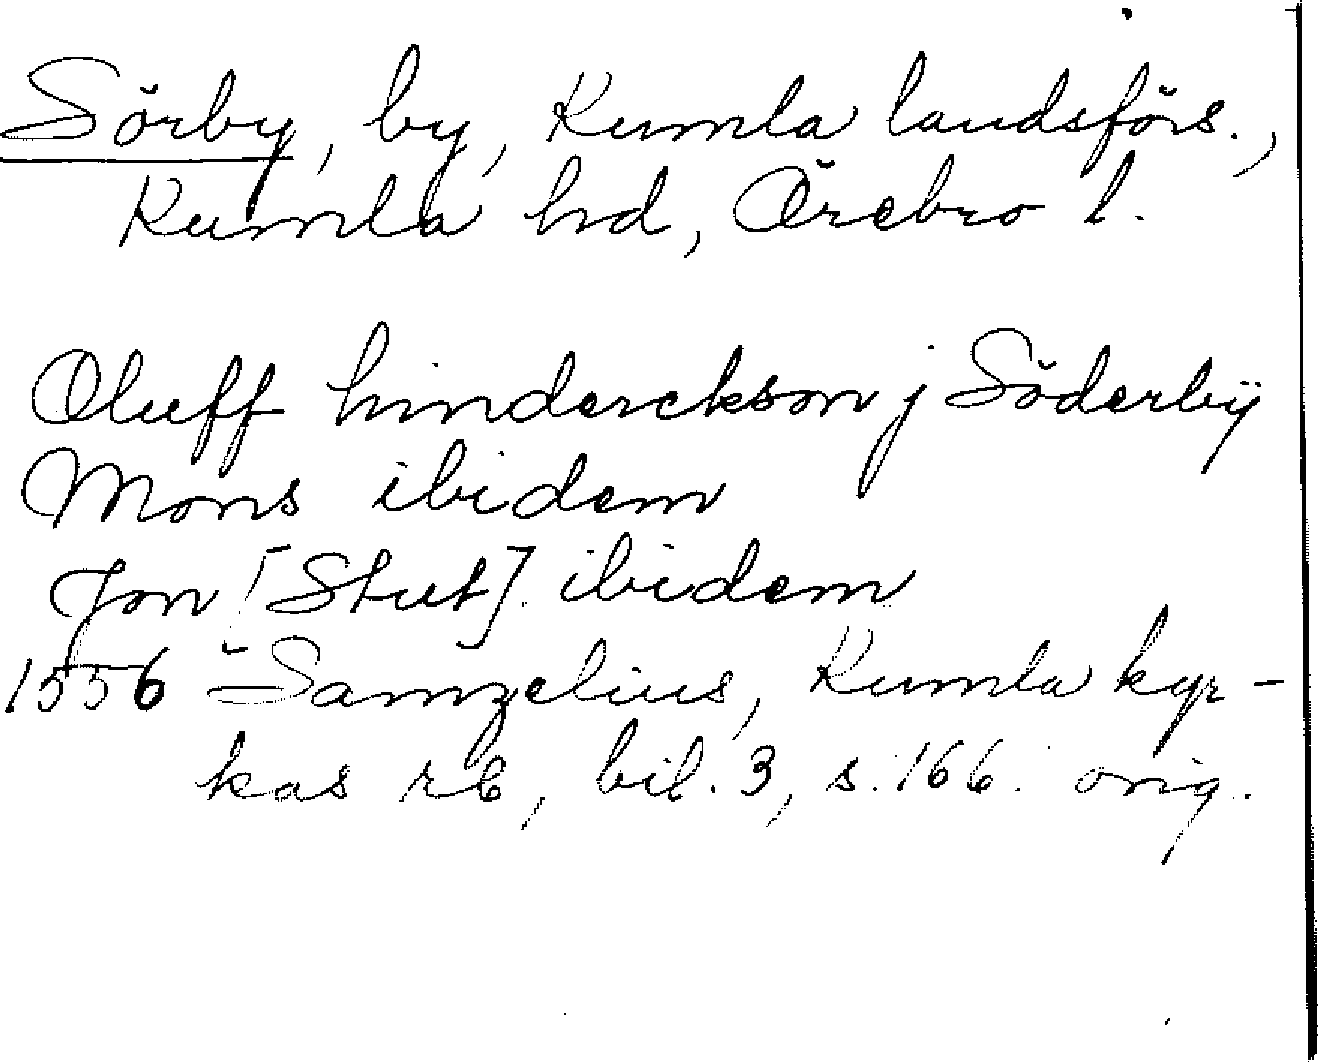 Sörby, by, Kumla landsförs.,
Kumla hd, Örebro l.
Oluff hinderckson j Söderbÿ
Mons ibidem
Jon [Stut] ibidem
1556 Samzelius, Kumla kyr-
kas rb, bil. 3, s. 166. orig.